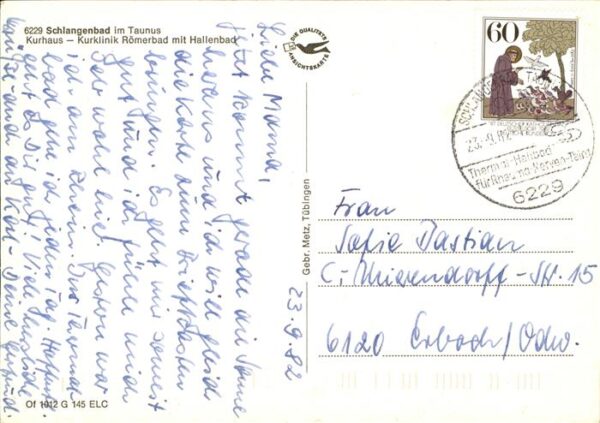 6229 Schlangenbad im Taunus
Kurhaus – Kurklinik Römerbad mit Hallenbad
DIE QUALITÄTS ANSICHTSKARTE
60
23.-9.82
Thermal-Heilbad
für Rheuma Nerven
6229
Liebe Mama,
jetzt kommt gerade die Sonne
heraus und ich will gleich
die Karte zum Briefkasten
bringen. Es geht mir soweit
gut und ich fühle mich
sehr wohl hier. Gestern war
ich am Rhein. Ins Thermal-
bad gehe ich jeden Tag. Hoffentl.
geht es Dir gut! Viele herzliche
Grüße und an Karl Deine
23.9.82
Gebr. Metz, Tübingen
Frau
Sofie Bastian
C.-Mierendorff-Str. 15
6120 Erbach/Odw.
Of 1912 G 145 ELC